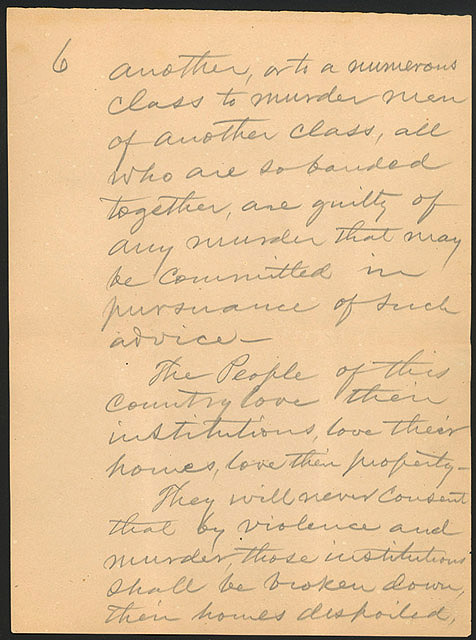 6
another, or to a numerous
class to murder men
of another class, all
who are so banded
together, are guilty of
any murder that may
be committed in
pursuance of such
advice—
The People of this
country love their
institutions, love their
homes, love their property—
They will never consent
that by violence and
murder, those institutions
shall be broken down,
their homes despoiled,